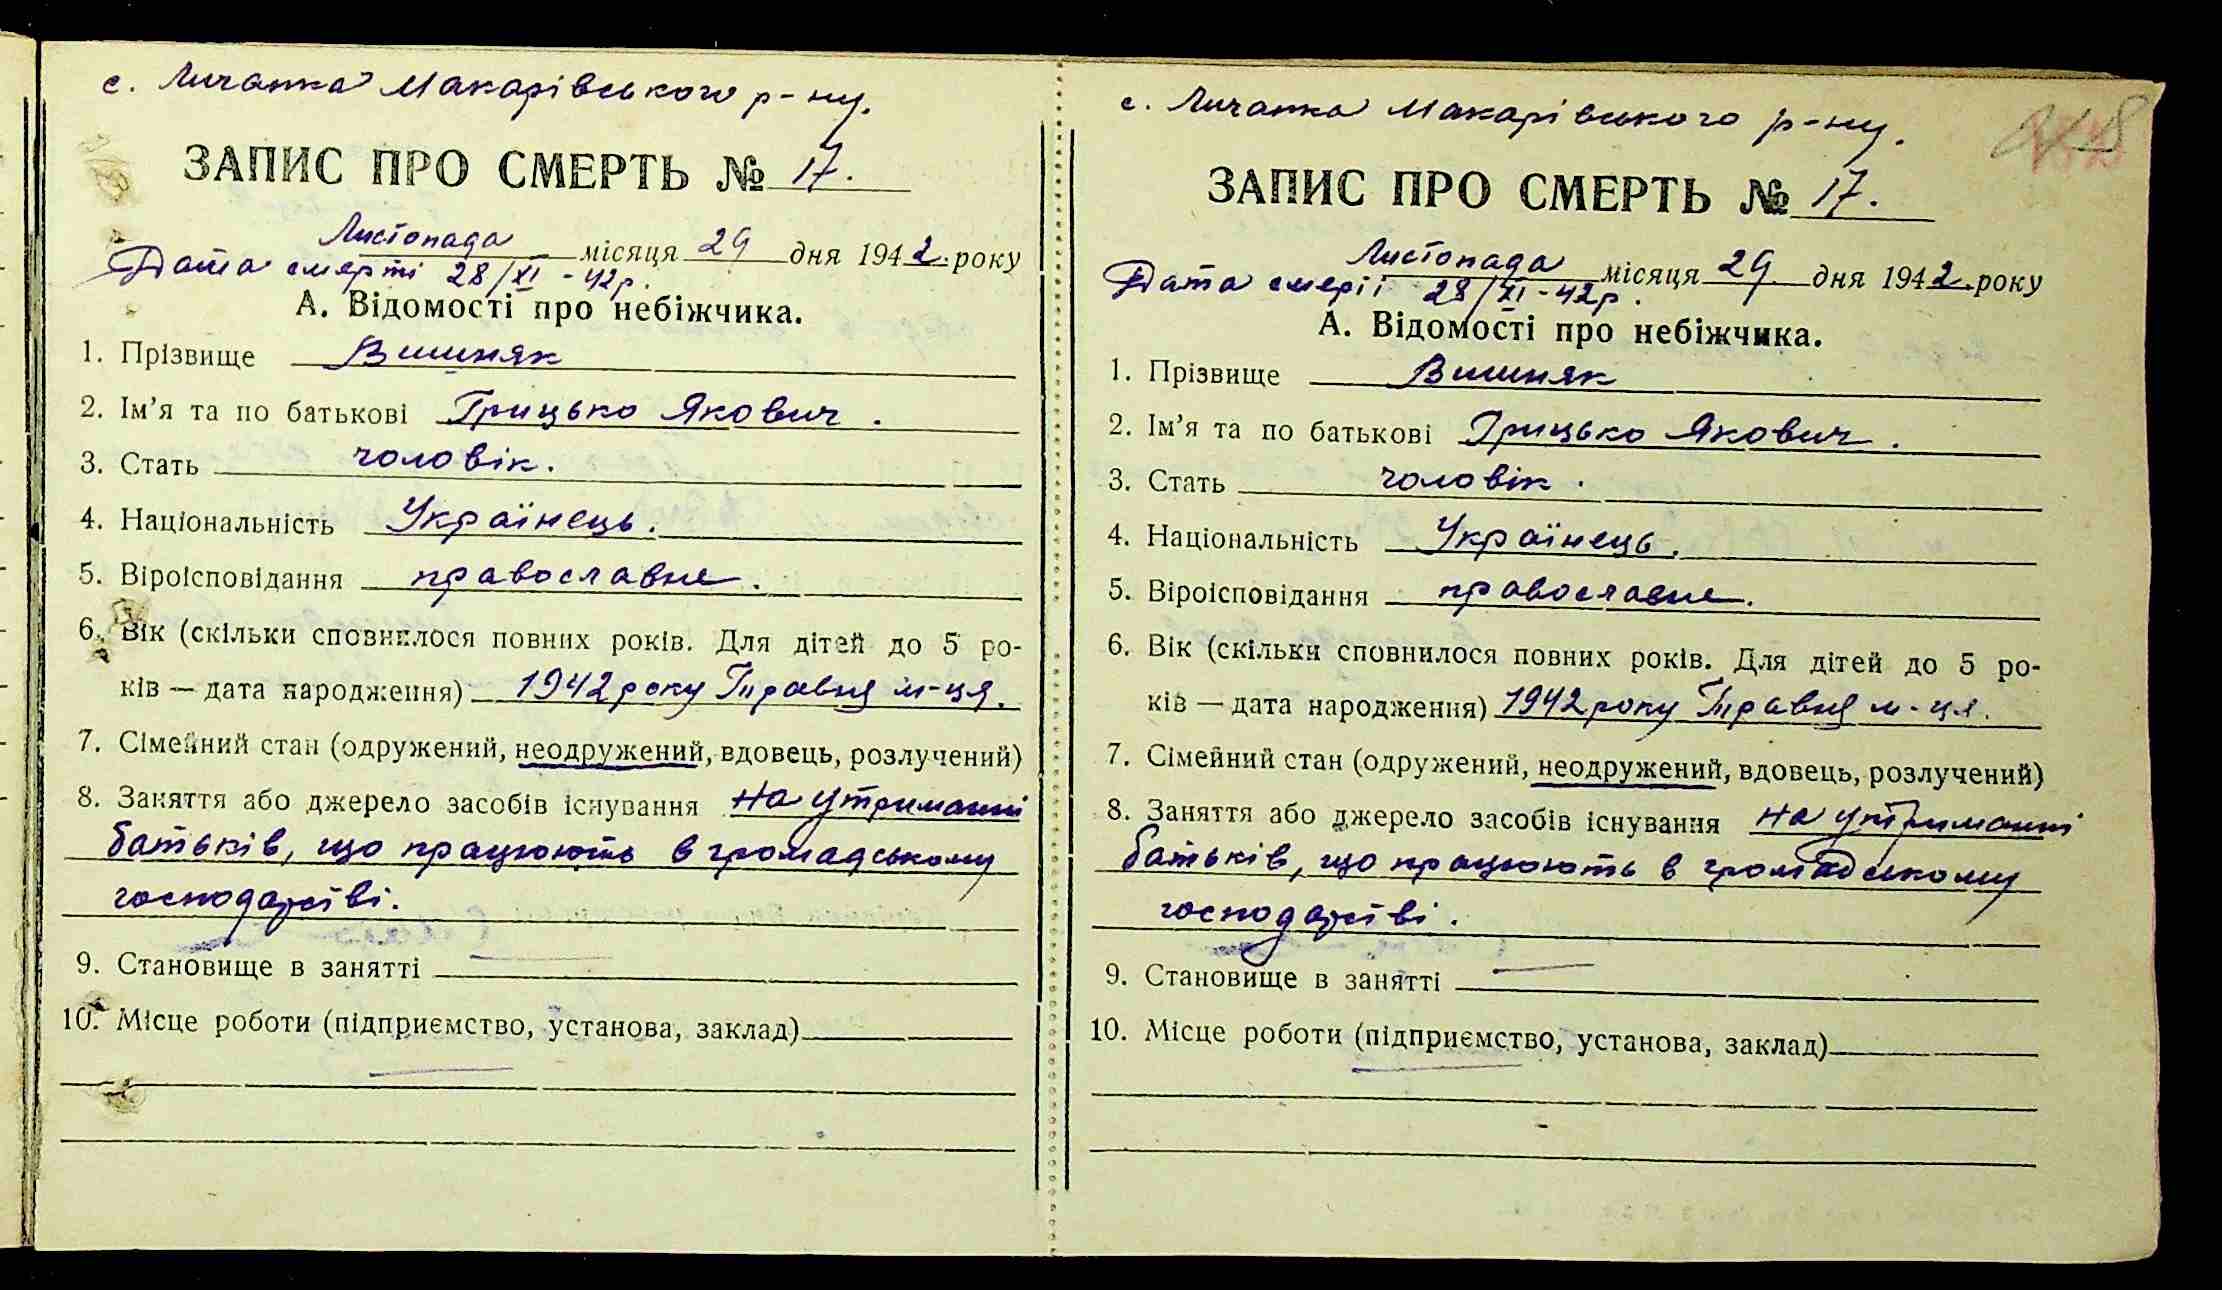 с. Личанка Макарівського р-ну.
ЗАПИС ПРО СМЕРТЬ № 17.
Листопада місяця 29 дня 1942 року
Дата смерті 28/XI-42р.
А. Відомості про небіжчика.
1. Прізвище Вишняк
2. Ім'я та по батькові Грицько Якович.
3. Стать чоловік.
4. Національність Українець.
5. Віроісповідання православне.
6. Вік (скільки сповнилося повних років. Для дітей до 5 ро-
ків — дата народження) 1942 року Травня м-ця.
7. Сімейний стан (одружений, неодружений, вдовець, розлучений)
8. Заняття або джерело засобів існування на утриманні
батьків, що працюють в громадському
господарстві.
9. Становище в занятті —
10. Місце роботи (підприємство, установа, заклад)
—
с. Личанка Макарівського р-ну.
ЗАПИС ПРО СМЕРТЬ № 17.
Листопада місяця 29 дня 1942 року
Дата смерті 28/XI-42р.
А. Відомості про небіжчика.
1. Прізвище Вишняк
2. Ім'я та по батькові Грицько Якович.
3. Стать чоловік.
4. Національність Українець.
5. Віроісповідання православне.
6. Вік (скільки сповнилося повних років. Для дітей до 5 ро-
ків — дата народження) 1942 року Травня м-ця.
7. Сімейний стан (одружений, неодружений, вдовець, розлучений)
8. Заняття або джерело засобів існування на утриманні
батьків, що працюють в громадському
господарстві.
9. Становище в занятті —
10. Місце роботи (підприємство, установа, заклад)
—